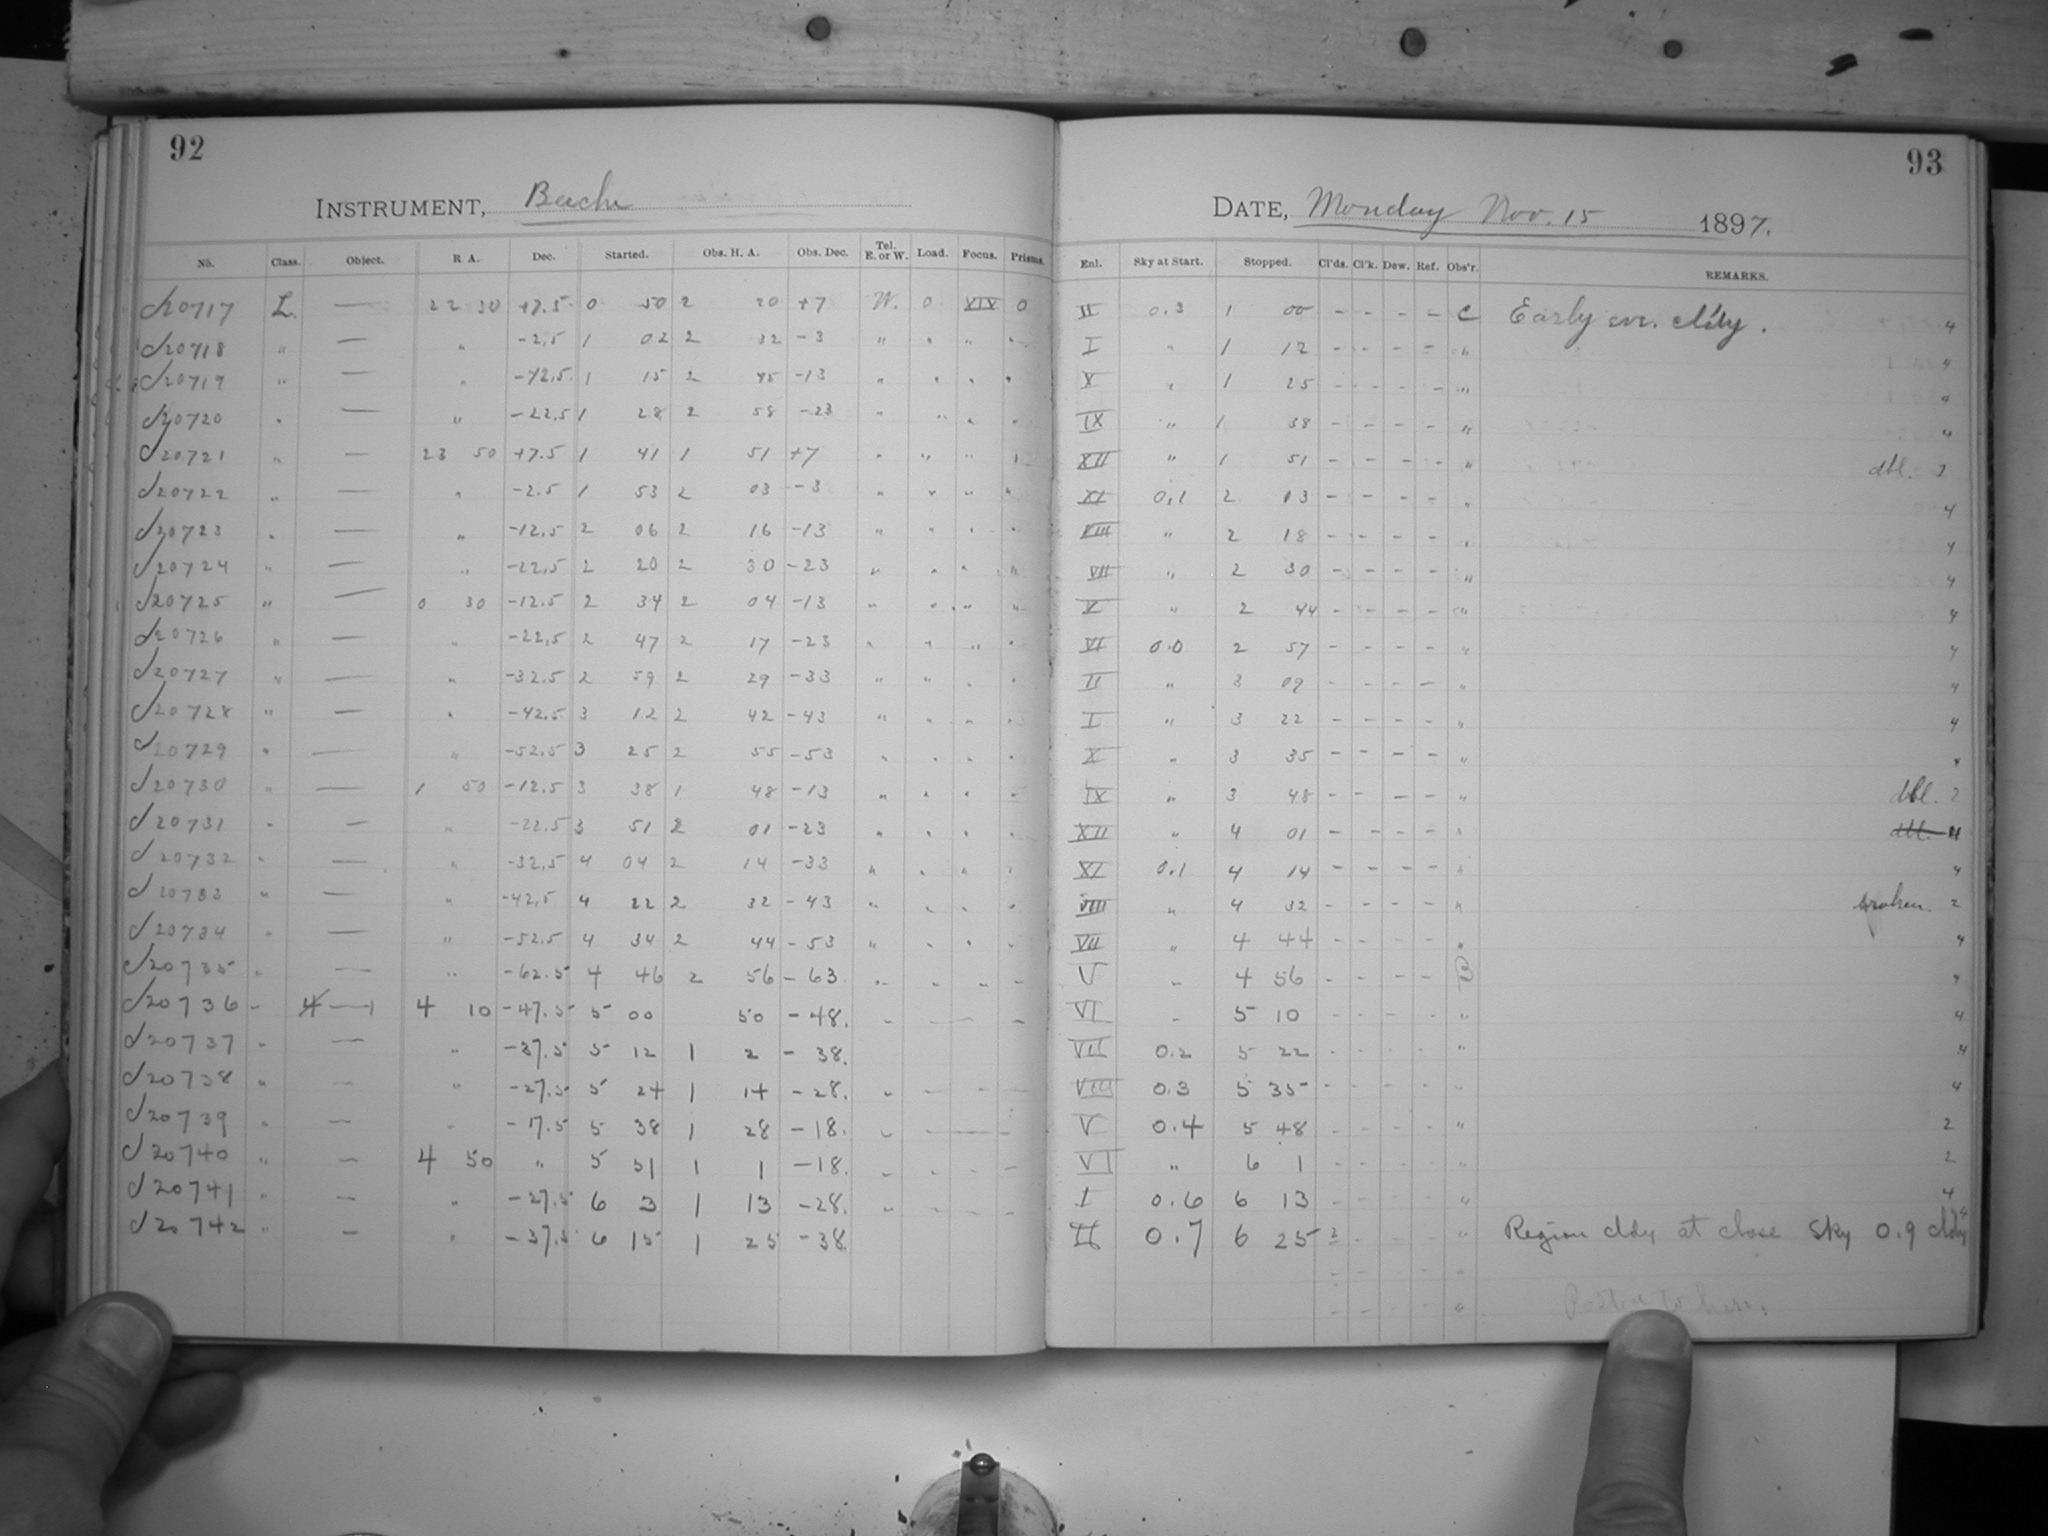 92
INSTRUMENT, Bache
No. Class. Object. R A. Dec. Started. Obs. H. A. Obs. Dec. Tel. E. or W. Load. Focus. Prisms.
20717 L. — 22 30 +7.5 0 50 2 20 +7 W. 0 XIX 0
20718 " — " -2.5 1 02 2 32 -3 " " " "
20719 " — " -12.5 1 15 2 45 -13 " " " "
20720 " — " -22.5 1 28 2 58 -23 " " " "
20721 " — 23 50 +7.5 1 41 1 51 +7 " " " "
20722 " — " -2.5 1 53 2 03 -3 " " " "
20723 " — " -12.5 2 06 2 16 -13 " " " "
20724 " — " -22.5 2 20 2 30 -23 " " " "
20725 " — 0 30 -12.5 2 34 2 04 -13 " " " "
20726 " — " -22.5 2 47 2 17 -23 " " " "
20727 " — " -32.5 2 59 2 29 -33 " " " "
20728 " — " -42.5 3 12 2 42 -43 " " " "
20729 " — " -52.5 3 25 2 55 -53 " " " "
20730 " — 1 50 -12.5 3 38 1 48 -13 " " " "
20731 " — " -22.5 3 51 2 01 -23 " " " "
20732 " — " -32.5 4 04 2 14 -33 " " " "
20733 " — " -42.5 4 22 2 32 -43 " " " "
20734 " — " -52.5 4 34 2 44 -53 " " " "
20735 " — " -62.5 4 46 2 56 -63. " " " "
20736 " — 4 10 -47.5 5 00 50 -48. " — — —
20737 " — " -37.5 5 12 1 2 -38.
20738 " — " -27.5 5 24 1 14 -28. " — — —
20739 " — " -17.5 5 38 1 28 -18. " — — —
20740 " — 4 50 " 5 51 1 1 -18. " — — —
20741 " — " -27.5 6 3 1 13 -28. " — — —
20742 " — " -37.5 6 15 1 25 -38.
93
DATE, Monday Nov. 15 1897.
Enl. Sky at Start. Stopped. Cl'ds. Cl'k. Dew. Ref. Obs'r. REMARKS.
II 0.3 1 00 - - - - C Early eve. cl'dy. 4
I " 1 12 - - - - " 4
X " 1 25 - - - - " 4
IX " 1 38 - - - - " 4
XII " 1 51 - - - - " dbl. 2
XI 0.1 2 03 - - - - " 4
VIII " 2 18 - - - - " 4
VII " 2 30 - - - - " 4
V " 2 44 - - - - " 4
VI 0.0 2 57 - - - - " 4
II " 3 09 - - - - " 4
I " 3 22 - - - - " 4
X " 3 35 - - - - " 4
IX " 3 48 - - - - " dbl. 2
XII " 4 01 - - - - " dbl. 4
XI 0.1 4 14 - - - - " 4
VIII " 4 32 - - - - " broken. 2
VII " 4 44 - - - - " 4
V " 4 56 - - - - B 4
VI " 5 10 - - - - " 4
VII 0.2 5 22 - - - - " 4
VIII 0.3 5 35 - - - - " 4
V 0.4 5 48 - - - - " 2
VI " 6 1 - - - - " 2
I 0.6 6 13 - - - - " 4
II 0.7 6 25 2 - - - " Region cldy at close Sky 0.9 cldy 4
- - - - "
- - - - " Posted to here.